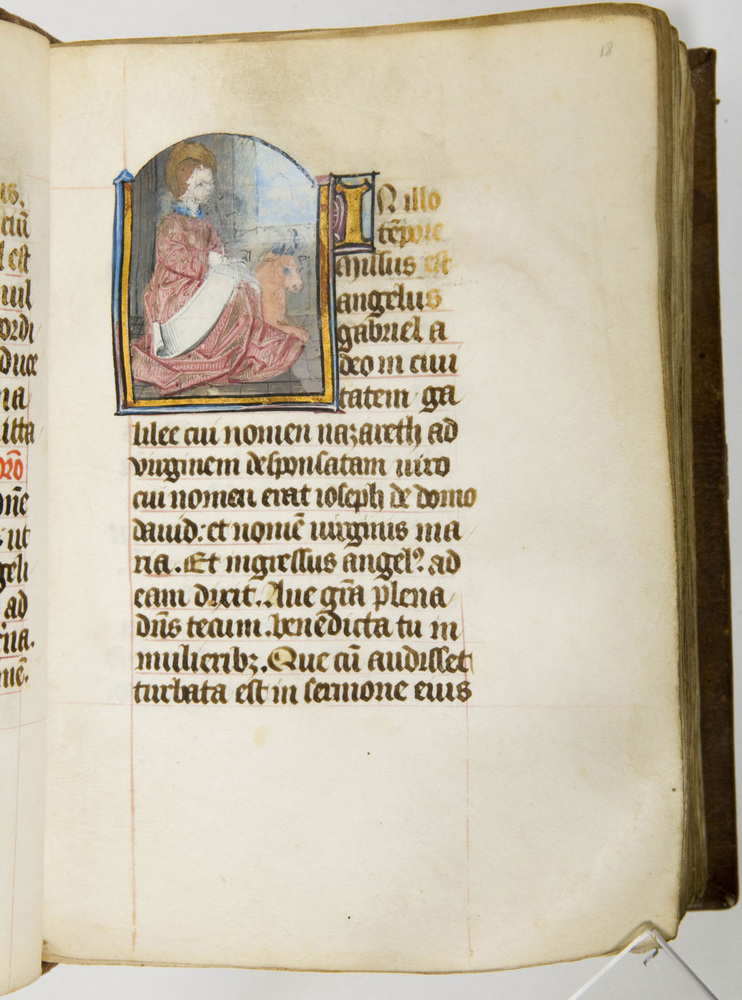 18
IN illo
te͂pore
missus est
angelus
gabriel a
deo in ciui
tatem ga
lilee cui nomen nazareth ad
virginem desponsatam uiro
cui nomen erat ioseph de domo
dauid: et nome͂ uirginis ma
ria. Et ingressus angelꝰ ad
eam dixit. Aue gr͂a plena
dn͂s tecum. benedicta tu in
mulieribꝫ. Que cu͂ audisset
turbata est in sermone eius